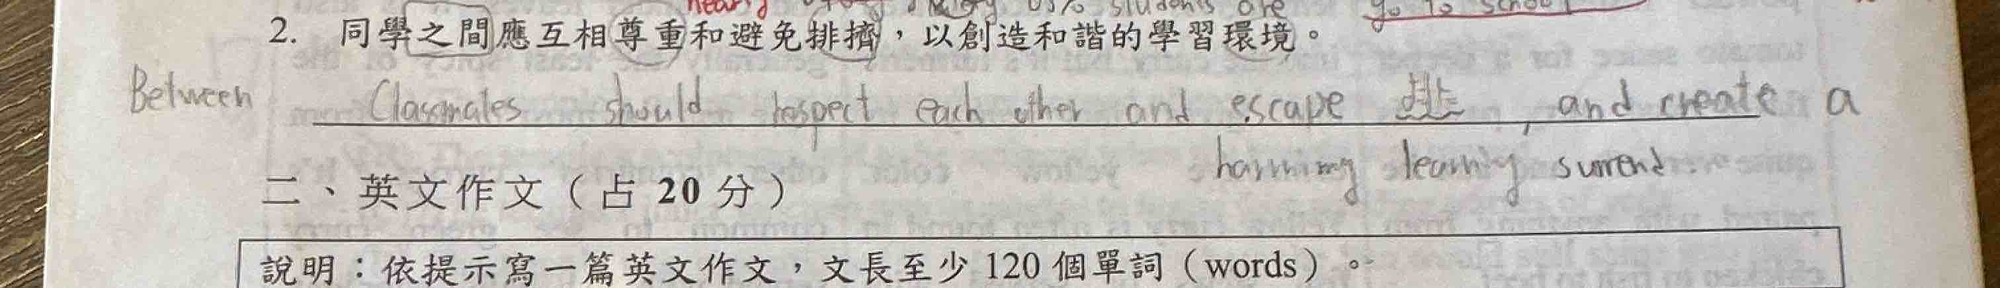 2. 同學之間應互相尊重和避免排擠，以創造和諧的學習環境。
Between Classmates should respect each other and escape 排, and create a
harming learning surrend.
二、英文作文（占 20 分）
說明：依提示寫一篇英文作文，文長至少 120 個單詞（words）。